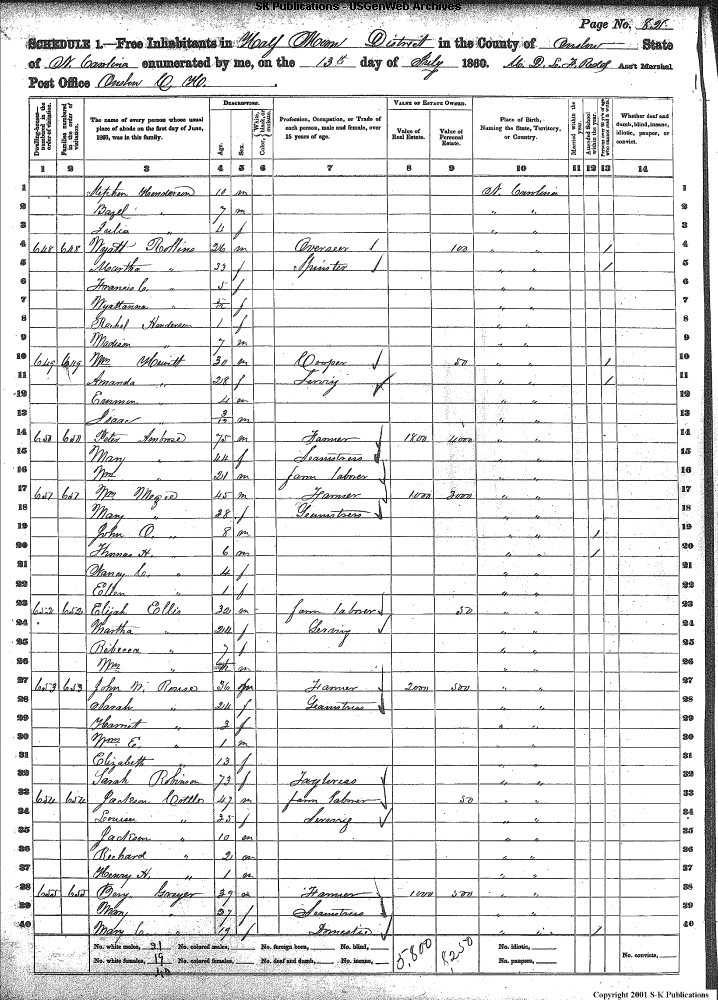 SK Publications - USGenWeb Archives
Page No. 85
SCHEDULE 1.—Free Inhabitants in Half Moon District in the County of Onslow State
of N. Carolina enumerated by me, on the 13th day of July 1860. Ass't Marshal
Post Office Onslow C. H.
DESCRIPTION. VALUE OF ESTATE OWNED.
Dwelling-houses—numbered in the order of visitation. Families numbered in the order of visitation. The name of every person whose usual place of abode on the first day of June, 1860, was in this family. Age. Sex. Color, White, black, or mulatto. Profession, Occupation, or Trade of each person, male and female, over 15 years of age. Value of Real Estate. Value of Personal Estate. Place of Birth, Naming the State, Territory, or Country. Married within the year. Attended School within the year. Whether deaf and dumb, blind, insane, idiotic, pauper, or convict.
1 2 3 4 5 6 7 8 9 10 11 12 13 14
1 Stephen Henderson 10 m N. Carolina 1
2 Bazel " 7 m " " 2
3 Julia " 4 f " " 3
4 648 648 Wyatt Rollins 26 m Overseer 100 " " / 4
5 Martha " 33 f Spinster " " / 5
6 Francis C. " 5 f " " 6
7 Wyattanna " f " 7
8 Rachel Henderson 1 f " " 8
9 Madison " 7 m " " 9
10 649 649 Wm Hewitt 30 m Cooper 50 " " / 10
11 Amanda " 28 f Serving " " / 11
12 " 4 m " " 12
13 Isaac " 3/12 m " " 13
14 650 650 Peter Ambrose 75 m Farmer 1800 4000 " " 14
15 Mary " 44 f Seamstress " " 15
16 Wm " 21 m farm laborer " " 16
17 651 651 Wm 45 m Farmer 1000 3000 " " 17
18 Mary " 28 f Seamstress " " 18
19 John O. " 8 m " " / 19
20 Thomas H. " 6 m " " / 20
21 Nancy C. " 4 f " 21
22 Ellen " 1 f " " 22
23 652 652 Elijah Ellis 32 m farm laborer 50 " " 23
24 Martha " 24 f Serving " " 24
25 Rebecca " 7 f " " 25
26 Wm " m " " 26
27 653 653 John W. Rouse 36 m Farmer 2000 500 " " 27
28 Sarah " 24 f Seamstress " " 28
29 Harriet " 3 f " " 29
30 Wm E. " 1 m " " 30
31 Elizabeth " 13 f " " 31
32 Sarah Robinson 73 f " " 32
33 654 654 Jackson Cottle 47 m farm laborer 50 " " 33
34 Louisa " 35 f Serving " " 34
35 Jackson " 10 m " " 35
36 Richard " 2 m " " 36
37 Henry H. " 1 m " " 37
38 655 655 39 m Farmer 1000 500 " " 38
39 Mary " 37 f Seamstress " " 39
40 Mary C. " 19 f Domestic " " / 40
No. white males, 21 No. colored males, No. foreign born, No. blind, 5,800 8,250 No. idiotic, No. convicts,
No. white females, 19 No. colored females, No. deaf and dumb, No. insane, No. paupers,
40
Copyright 2001 S-K Publications